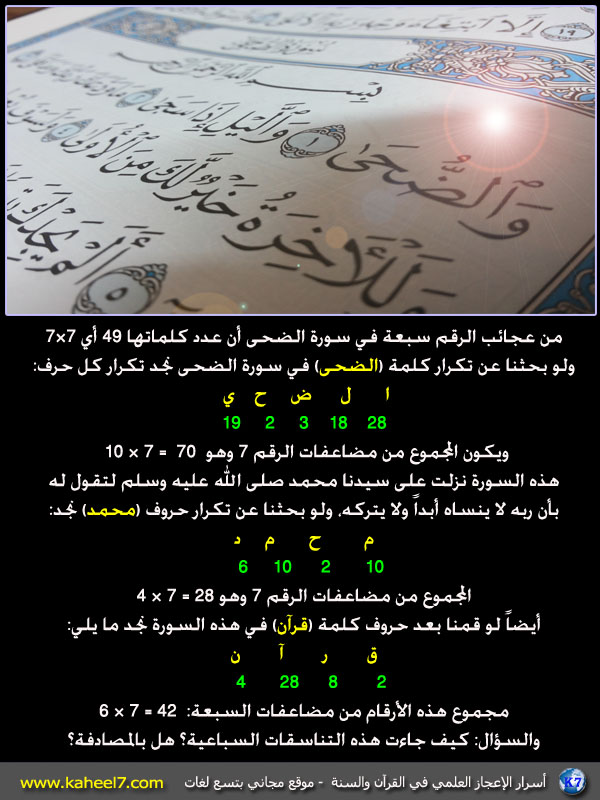 إِلَّا ١٩
بِسْمِ
وَٱلضُّحَىٰ ١ وَٱلَّيْلِ إِذَا سَجَىٰ ٢
وَلَلْأَخِرَةُ خَيْرٌ لَّكَ مِنَ ٱلْأُولَىٰ ٤
٥ أَلَمْ يَجِدْكَ
من عجائب الرقم سبعة في سورة الضحى أن عدد كلماتها 49 أي 7×7
ولو بحثنا عن تكرار كلمة (الضحى) في سورة الضحى نجد تكرار كل حرف:
ا ل ض ح ي
28 18 3 2 19
ويكون المجموع من مضاعفات الرقم 7 وهو 70 = 7 × 10
هذه السورة نزلت على سيدنا محمد صلى الله عليه وسلم لتقول له
بأن ربه لا ينساه أبداً ولا يتركه، ولو بحثنا عن تكرار حروف (محمد) نجد:
م ح م د
10 2 10 6
المجموع من مضاعفات الرقم 7 وهو 28 = 7 × 4
أيضاً لو قمنا بعد حروف كلمة (قرآن) في هذه السورة نجد ما يلي:
ق ر آ ن
2 8 28 4
مجموع هذه الأرقام من مضاعفات السبعة: 42 = 7 × 6
والسؤال: كيف جاءت هذه التناسقات السباعية؟ هل بالمصادفة؟
K7 أسرار الإعجاز العلمي في القرآن والسنة - موقع مجاني بتسع لغات www.kaheel7.com